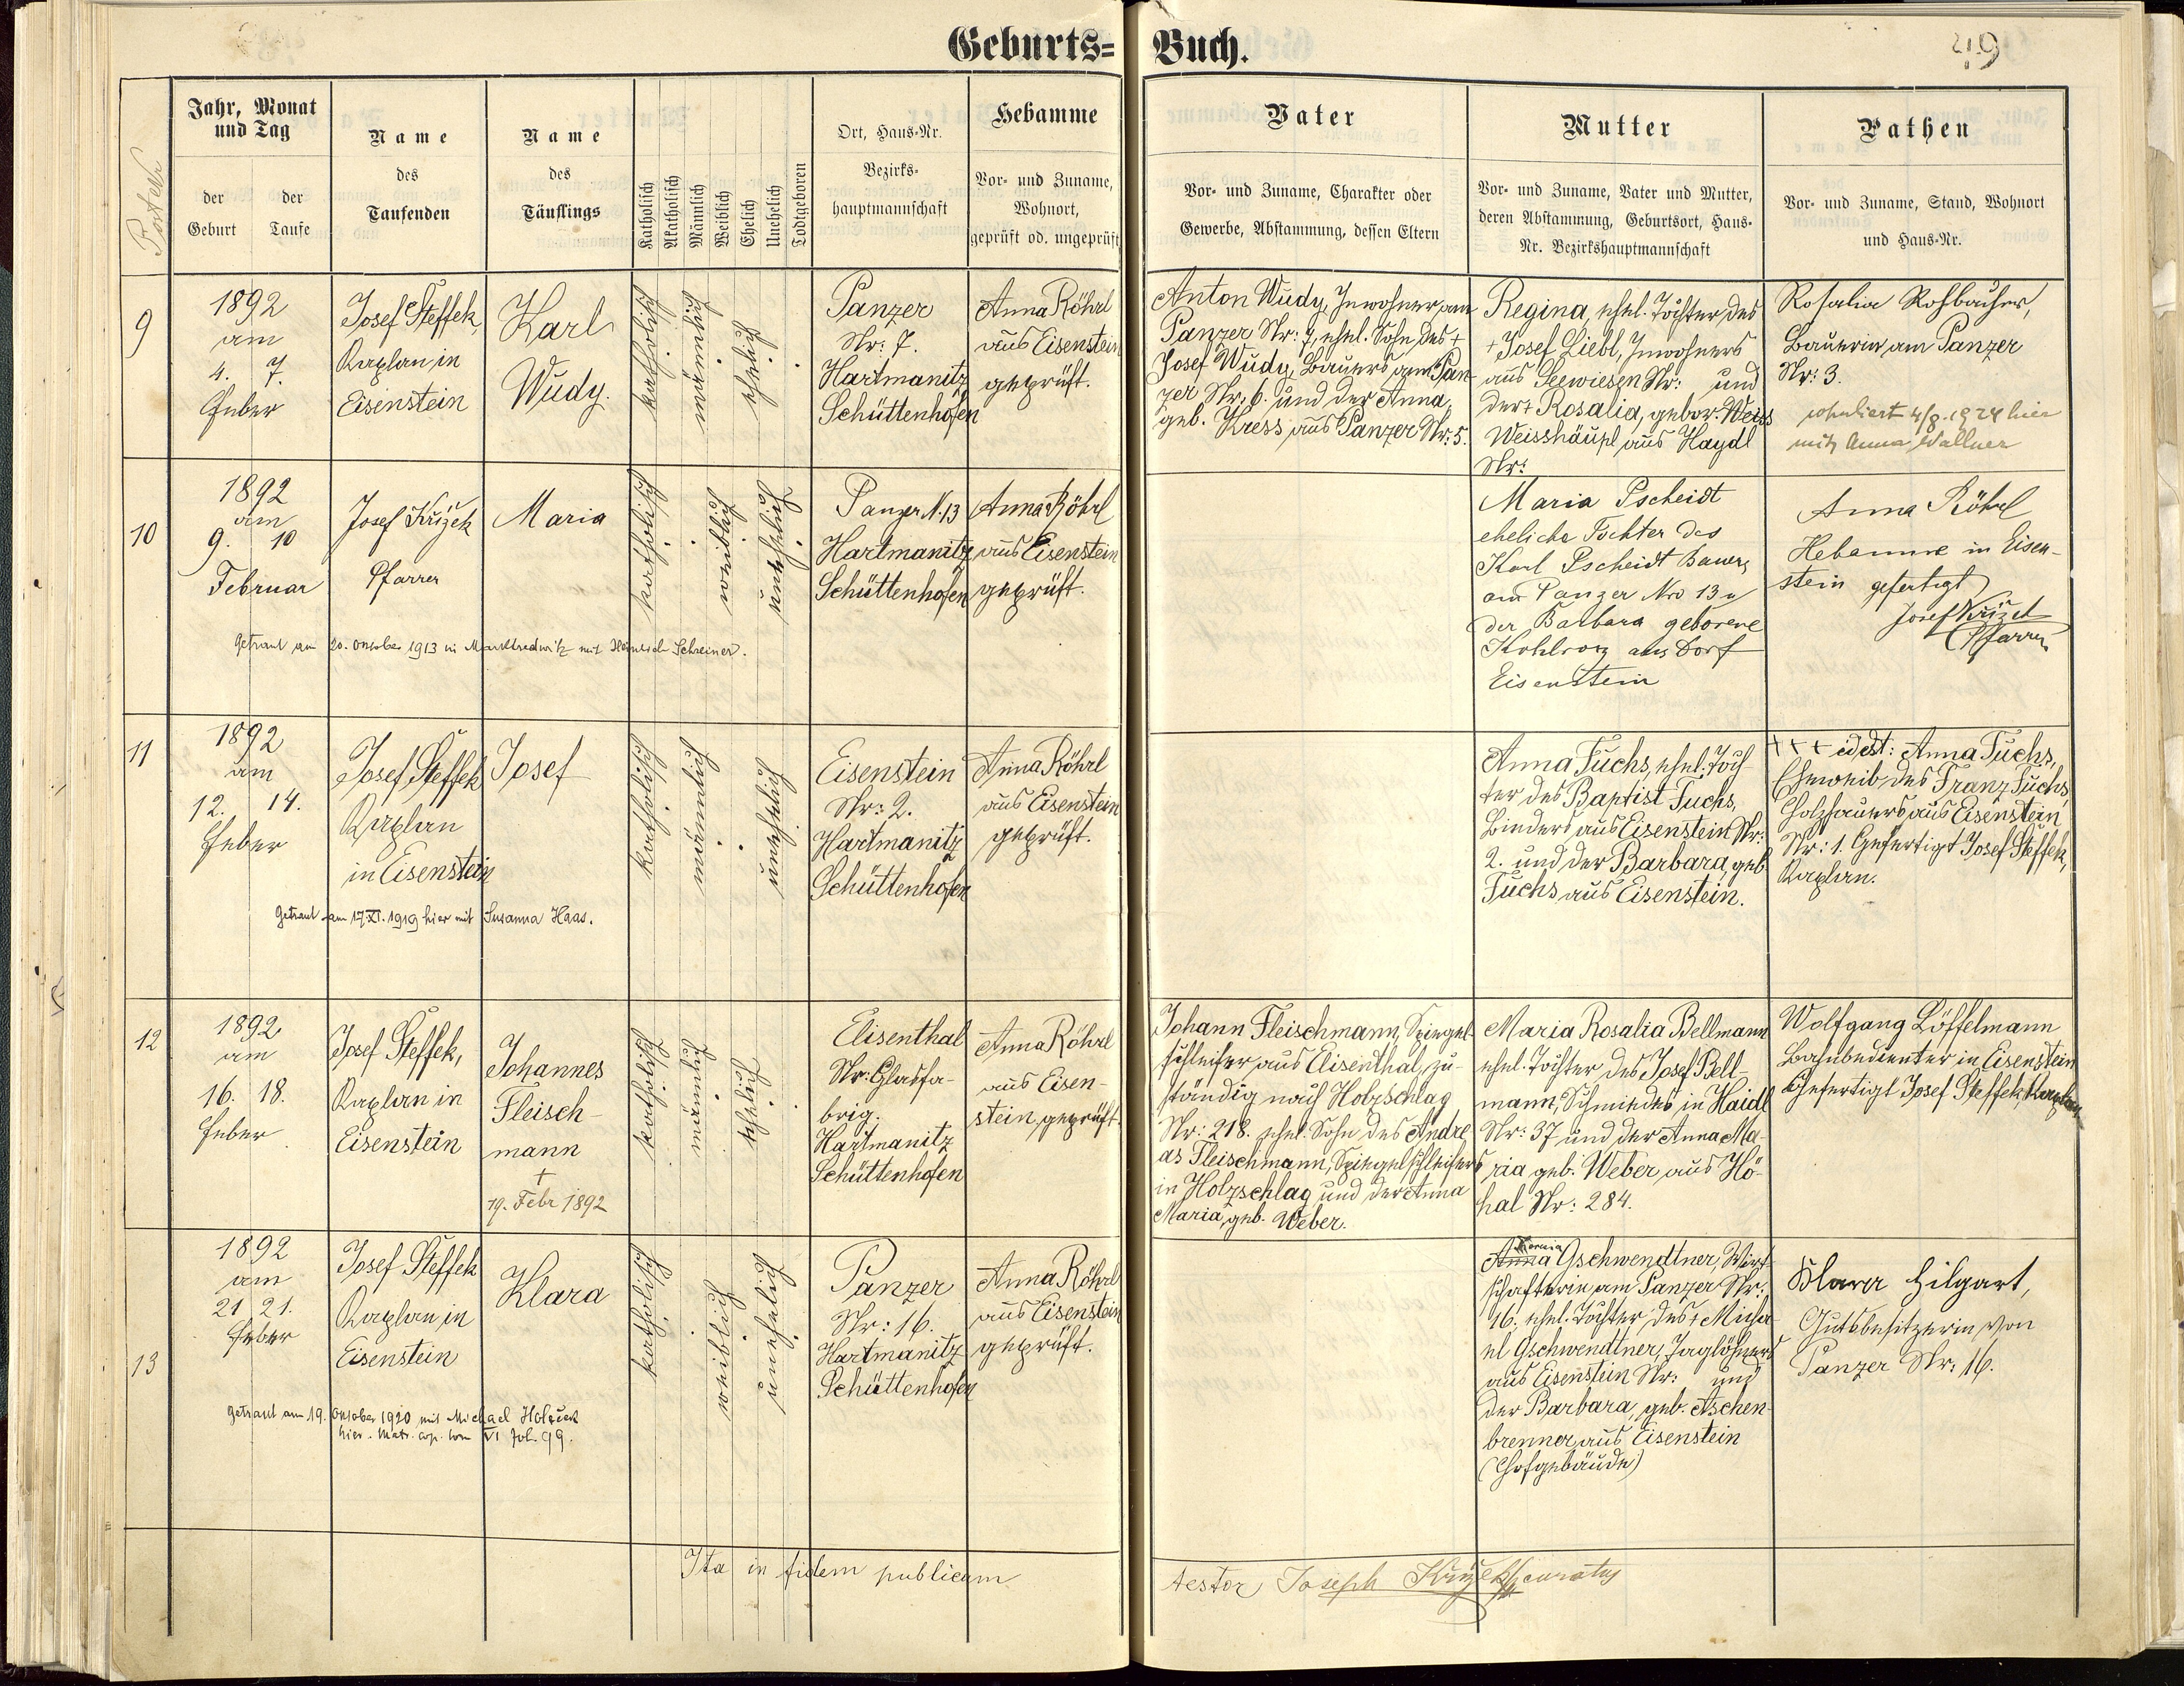 Geburts= Buch.
49
Postenr
Jahr, Monat
und Tag
der
Geburt
der
Taufe
Name
des
Taufenden
Name
des
Täuflings
Katholisch
Akatholisch
Männlich
Weiblich
Ehelich
Unehelich
Todtgeboren
Ort, Haus-Nr.
Bezirks-
hauptmannschaft
Hebamme
Vor- und Zuname,
Wohnort,
geprüft od. ungeprüft
Vater
Vor- und Zuname, Charakter oder
Gewerbe, Abstammung, dessen Eltern
Mutter
Vor- und Zuname, Vater und Mutter,
deren Abstammung, Geburtsort, Haus-
Nr. Bezirkshauptmannschaft
Pathen
Vor- und Zuname, Stand, Wohnort
und Haus-Nr.
9
1892
am
4. 7.
Feber
Josef Steffek,
Kaplan in
Eisenstein
Karl
Wudy.
katholisch
männlich
ehelich
Panzer
Nr: 7.
Hartmanitz
Schüttenhofen
Anna Röhrl
aus Eisenstein
geprüft.
Anton Wudy, Inwohner am
Panzer Nr: 7, ehel. Sohn des +
Josef Wudy, Bauers am Pan-
zer Nr. 6. und der Anna,
geb. Kress aus Panzer Nr: 5.
Regina, ehel. Tochter des
+ Josef Liebl, Inwohners
aus Seewiesen Nr: und
der + Rosalia, gebor. Weiss
Weisshäupl aus Haydl
Nr:
Rosalia Rossbauher,
Bäuerin am Panzer
Nr: 3.
copuliert 4/8. 1924 hier
mit Anna Wallner
10
1892
am
9. 10
Februar
Josef Křížek
Pfarrer
Maria
katholisch
weiblich
unehelich
Panzer N. 13
Hartmanitz
Schüttenhofen
Anna Röhrl
aus Eisenstein
geprüft.
Maria Pscheidt
eheliche Tochter des
Karl Pscheidt Bauers
am Panzer Nro 13 u
der Barbara geborene
Kohlroz aus Dorf
Eisenstein
Anna Röhrl
Hebamme in Eisen-
stein gefertigt
Josef Křížek
Pfarrer
Getraut am 20. Oktober 1913 in Marktredwitz mit Heinrich Schreiner.
11
1892
am
12. 14.
Feber
Josef Steffek
Kaplan
in Eisenstein
Josef
katholisch
männlich
unehelich
Eisenstein
Nr: 2.
Hartmanitz
Schüttenhofen
Anna Röhrl
aus Eisenstein
geprüft.
Anna Fuchs, ehel. Toch-
ter des Baptist Fuchs,
Binders aus Eisenstein Nr:
2. und der Barbara, geb.
Fuchs aus Eisenstein.
+++ id est: Anna Fuchs,
Eheweib des Franz Fuchs,
Holzhauers aus Eisenstein
Nr: 1. Gefertigt Josef Steffek,
Kaplan.
Getraut am 17. XI. 1919 hier mit Susanna Haas.
12
1892
am
16. 18.
Feber
Josef Steffek,
Kaplan in
Eisenstein
Johannes
Fleisch-
mann
+
19. Febr 1892
katholisch
männlich
ehelich
Elisenthal
Nr: Glasfa-
brig.
Hartmanitz
Schüttenhofen
Anna Röhrl
aus Eisen-
stein, geprüft.
Johann Fleischmann, Spiegel-
schleifer aus Elisenthal, zu-
ständig nach Holzschlag
Nr: 218. ehel. Sohn des Andre-
as Fleischmann, Spiegelschleifers
in Holzschlag und der Anna
Maria, geb. Weber.
Maria Rosalia Bellmann
ehel. Tochter des Josef Bell-
mann, Schmiedes in Haidl
Nr: 37 und der Anna Ma-
ria geb. Weber aus Hö-
hal Nr: 284.
Wolfgang Löffelmann
Bahnbedienter in Eisenstein
Gefertigt Josef Steffek, Kaplan
13
1892
am
21 21.
Feber
Josef Steffek
Kaplan in
Eisenstein
Klara
katholisch
weiblich
unehelich
Panzer
Nr: 16.
Hartmanitz
Schüttenhofen
Anna Röhrl
aus Eisenstein
geprüft.
Anna Gschwendtner, Wirt-
schafterin am Panzer Nr:
16. ehel. Tochter des + Micha-
el Gschwendtner, Taglöhners
aus Eisenstein Nr: und
der Barbara, geb. Aschen-
brenner aus Eisenstein
(Hofgebäude)
Klara Hilgart,
Gutsbesitzerin von
Panzer Nr: 16.
Getraut am 19. Oktober 1920 mit Michael Holzek
hier. Matr. cop. tom VI fol. 99.
Ita in fidem publicam
testor Joseph Křížek curatus